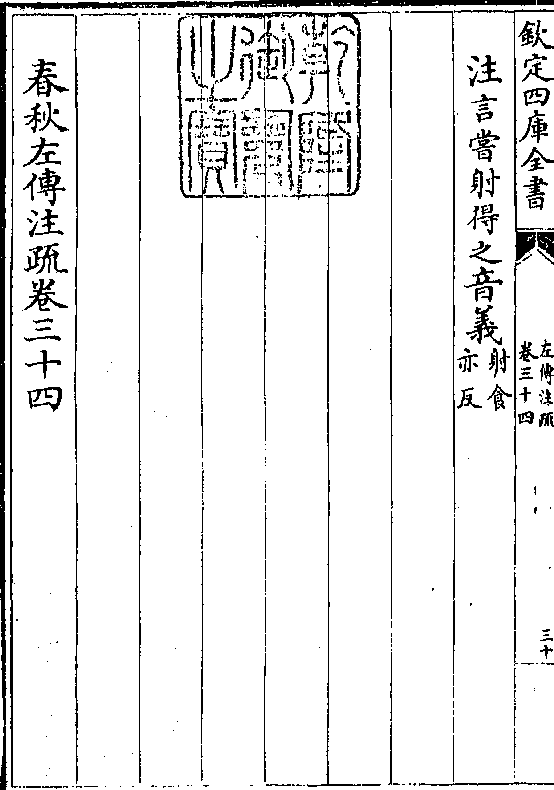 欽定四庫全書
左傳注疏
卷三十四
三十
注言嘗射得之音義
射食
亦反
乾隆
御覽
之寶
春秋左傳注疏卷三十四